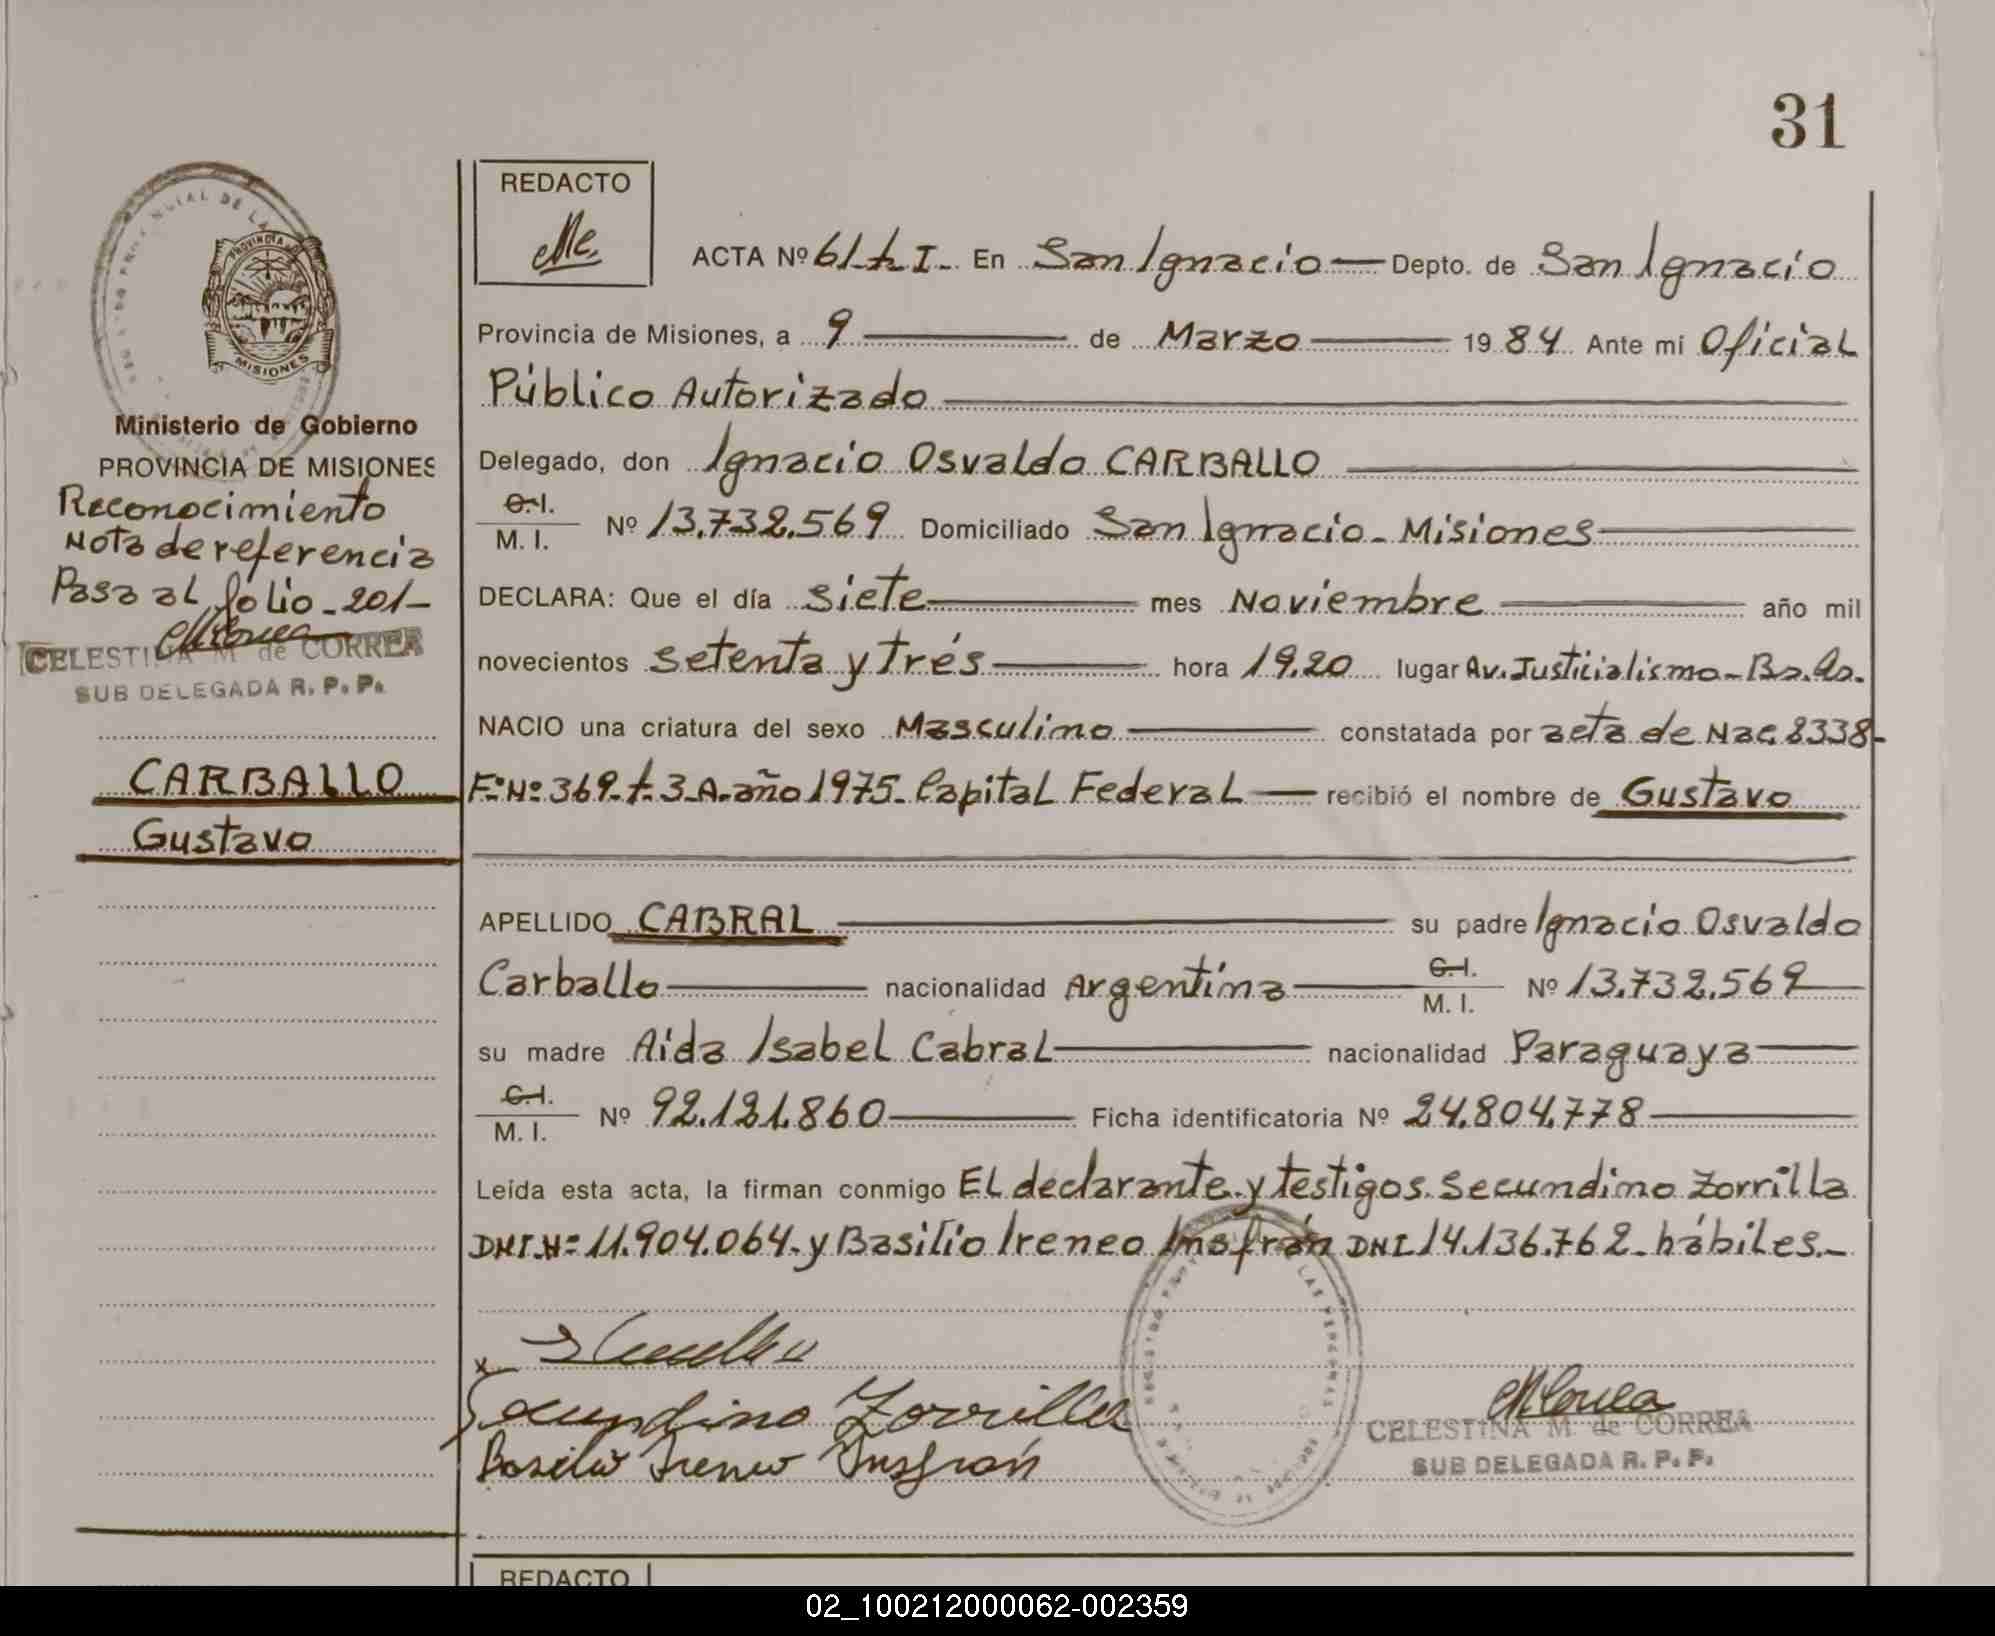 31
REDACTO
ACTA Nº 61-t. I- En San Ignacio Depto. de San Ignacio
Provincia de Misiones, a 9 de Marzo 1984 Ante mi Oficial
Público Autorizado
Delegado, don Ignacio Osvaldo CARBALLO
C.I.
M. I. Nº 13.732.569 Domiciliado San Ignacio - Misiones
DECLARA: Que el día siete mes Noviembre año mil
novecientos setenta y trés hora 19,20 lugar Av. Justicialismo - Bs. As.
NACIO una criatura del sexo Masculino constatada por acta de Nac. 8338-
F.º Nº 369-t-3-A-año 1975- Capital Federal recibió el nombre de Gustavo
APELLIDO CABRAL su padre Ignacio Osvaldo
Carballo nacionalidad Argentina C.I. M. I. Nº 13.732.569
su madre Aida Isabel Cabral nacionalidad Paraguaya
C.I.
M. I. Nº 92.121.860 Ficha identificatoria Nº 24.804.778
Leída esta acta, la firman conmigo El declarante y testigos Secundino Zorrilla
DNI.Nº 11.904.064- y Basilio Ireneo Insfrán DNI 14.136.762- hábiles.-
Secundino Zorrilla
Basilio Ireneo Insfrán
CELESTINA M de CORREA
SUB DELEGADA R. P. P.
PROVINCIA DE
MISIONES
Ministerio de Gobierno
PROVINCIA DE MISIONES
Reconocimiento
Nota de referencia
Pasa al folio - 201-
CELESTINA M de CORREA
SUB DELEGADA R. P. P.
CARBALLO
Gustavo
REDACTO
02_100212000062-002359